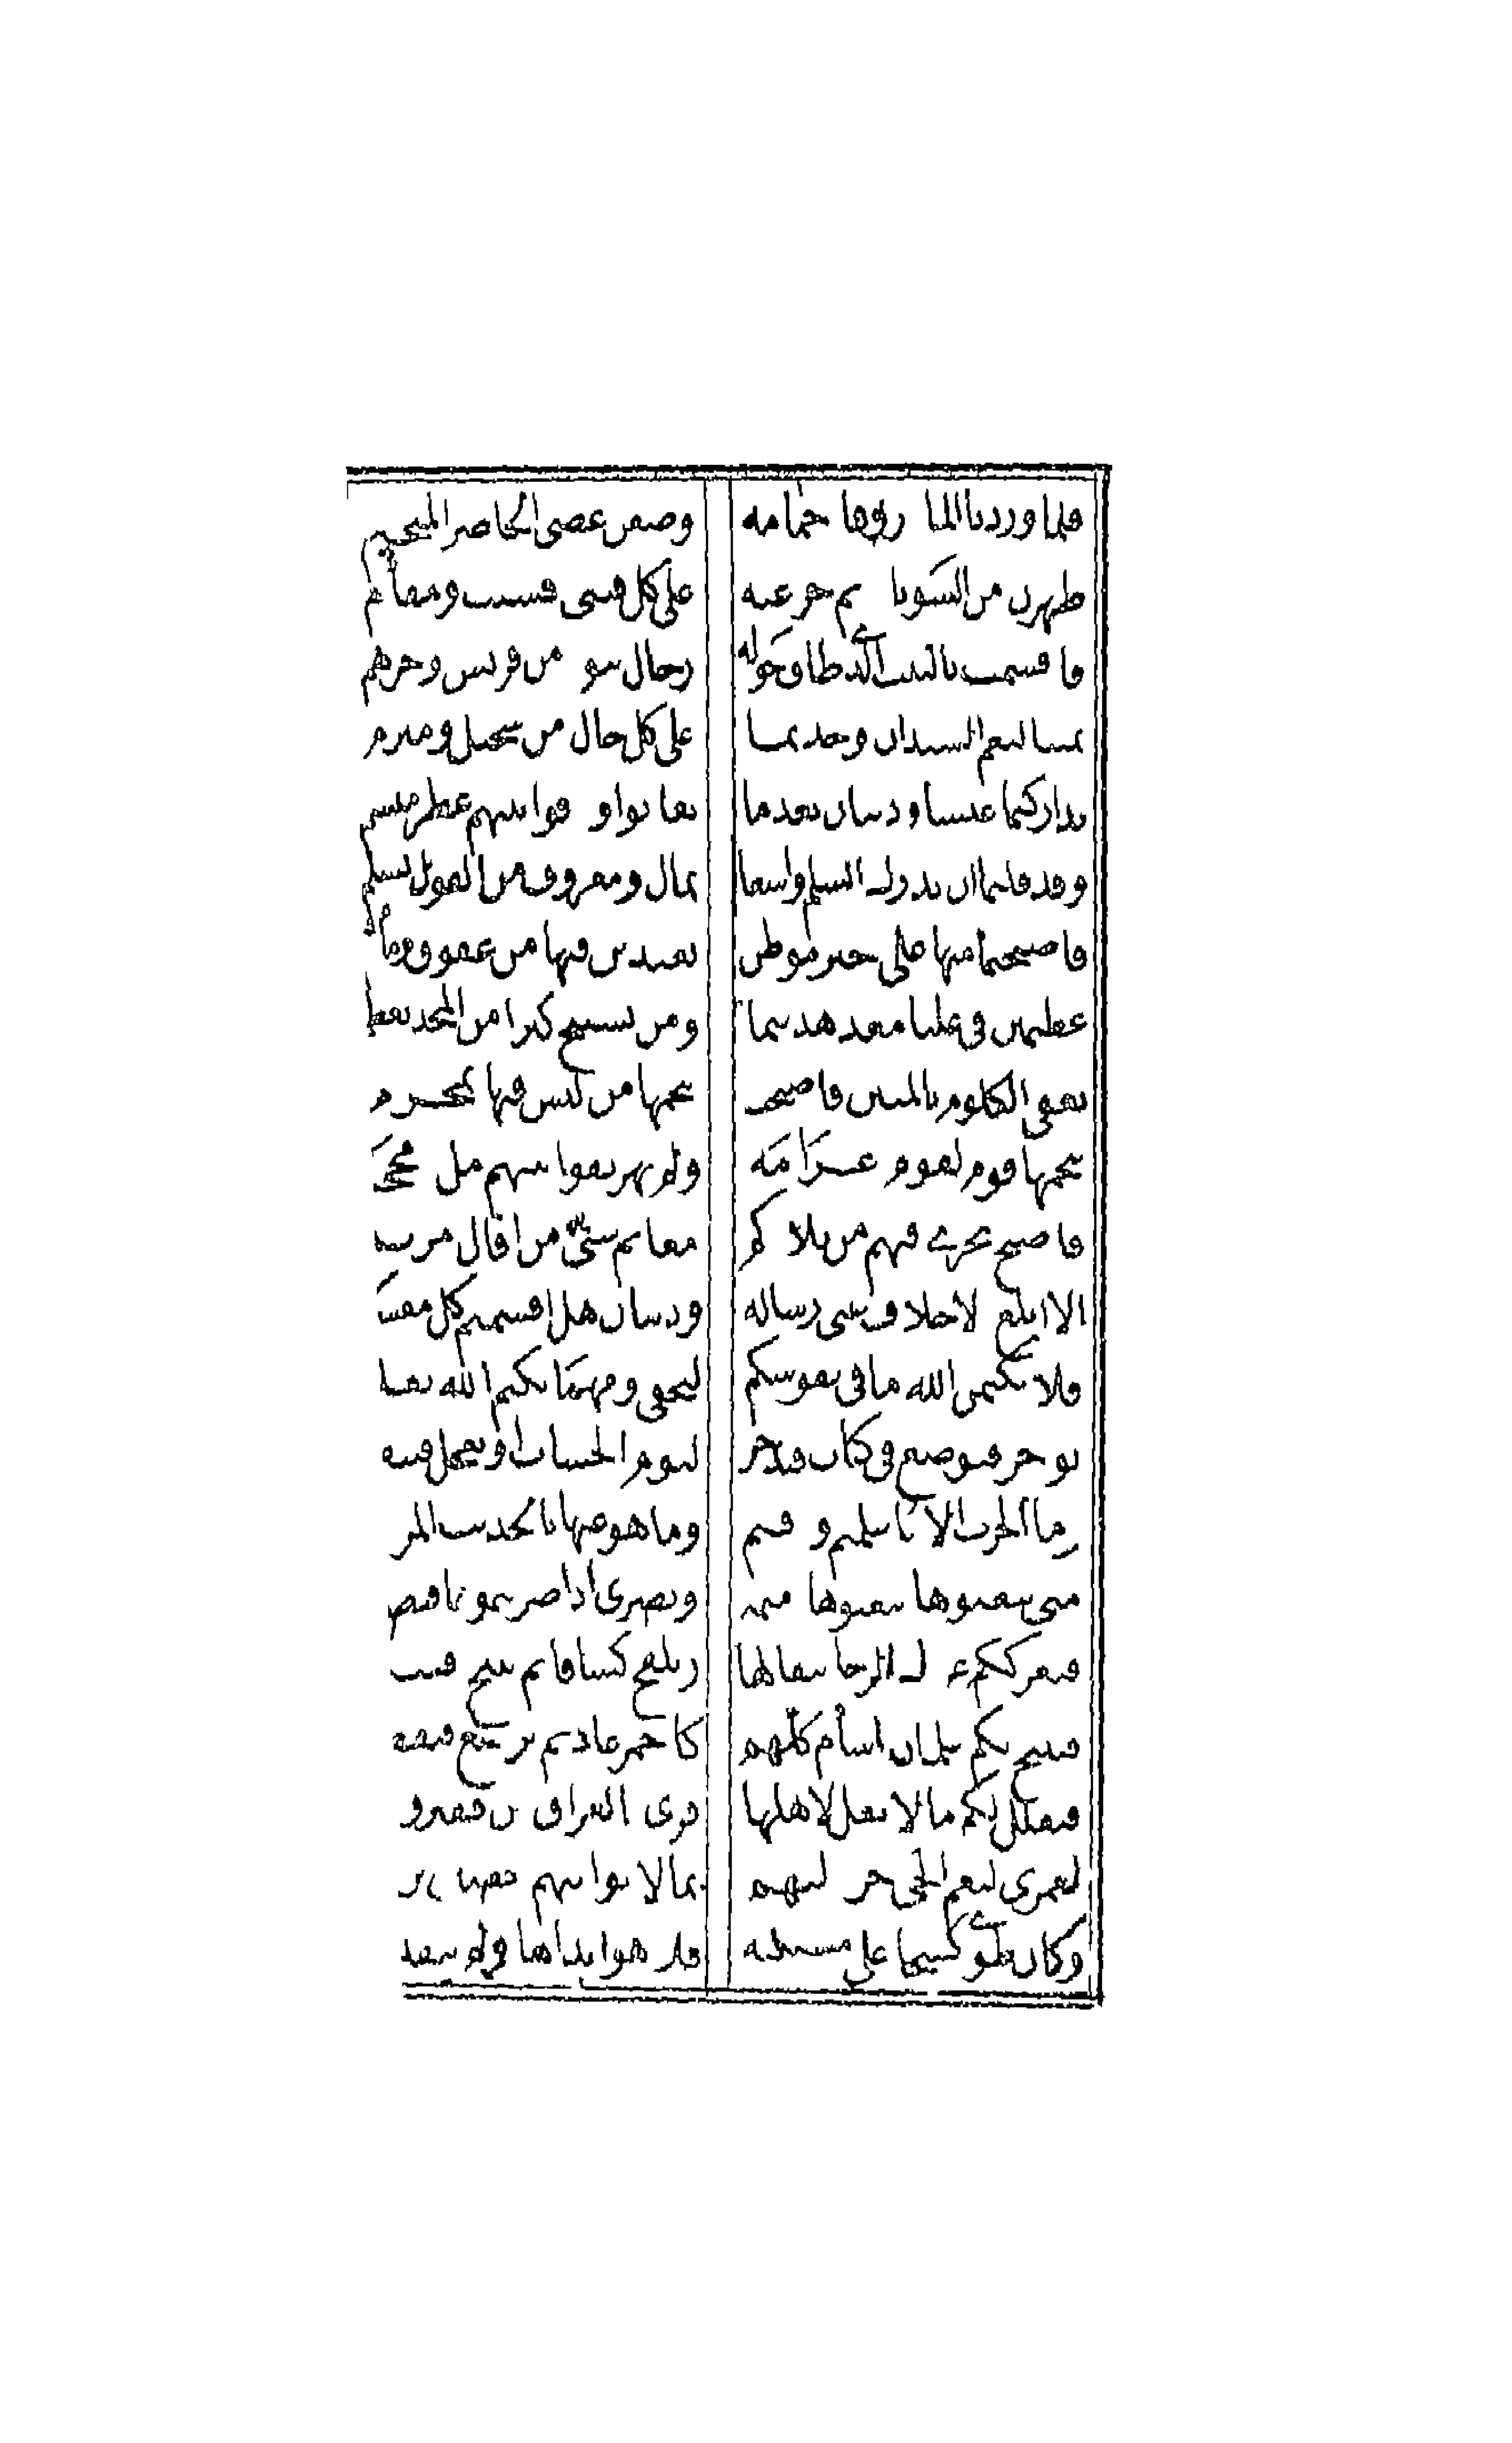 فلما وردنا الما زرقا جمامه وضعن عصي الحاضر المتخيم
ظهرن من السوبان ثم جزعنه على كل قيني قشيب ومفأم
فاقسمت بالبيت الذي طاف حوله رجال بنوه من قريش وجرهم
يمينا لنعم السيدان وجدتما على كل حال من سحيل ومبرم
تداركتما عبسا وذبيان بعدما تفانوا ودقوا بينهم عطر منشم
وقد قلتما ان ندرك السلم واسعا بمال ومعروف من القول نسلم
فاصبحتما منها على خير موطن بعيدين فيها من عقوق ومأثم
عظيمين في عليا معد هديتما ومن يستبح كنزا من المجد يعظم
تعفى الكلوم بالمئين فاصبحت ينجمها من ليس فيها بمجرم
ينجمها قوم لقوم غرامة ولم يهريقوا بينهم مل محجم
فاصبح يجري فيهم من تلادكم مغانم شتى من افال مزنم
الا ابلغ الاحلاف عني رسالة وذبيان هل اقسمتم كل مقسم
فلا تكتمن الله ما في نفوسكم ليخفى ومهما يكتم الله يعلم
يوخر فيوضع في كتاب فيدخر ليوم الحساب او يعجل فينقم
وما الحرب الا ما علمتم وذقتم وما هو عنها بالحديث المرجم
متى تبعثوها تبعثوها ذميمة وتضرى اذا ضريتموها فتضرم
فتعرككم عرك الرحا بثفالها وتلقح كشافا ثم تنتج فتتئم
فتنتج لكم غلمان اشأم كلهم كاحمر عاد ثم ترضع فتفطم
فتغلل لكم ما لا تغل لاهلها قرى بالعراق من قفيز ودرهم
لعمري لنعم الحي جر عليهم بما لا يواتيهم حصين بن ضمضم
وكان طوى كشحا على مستكنة فلا هو ابداها ولم يتقدم